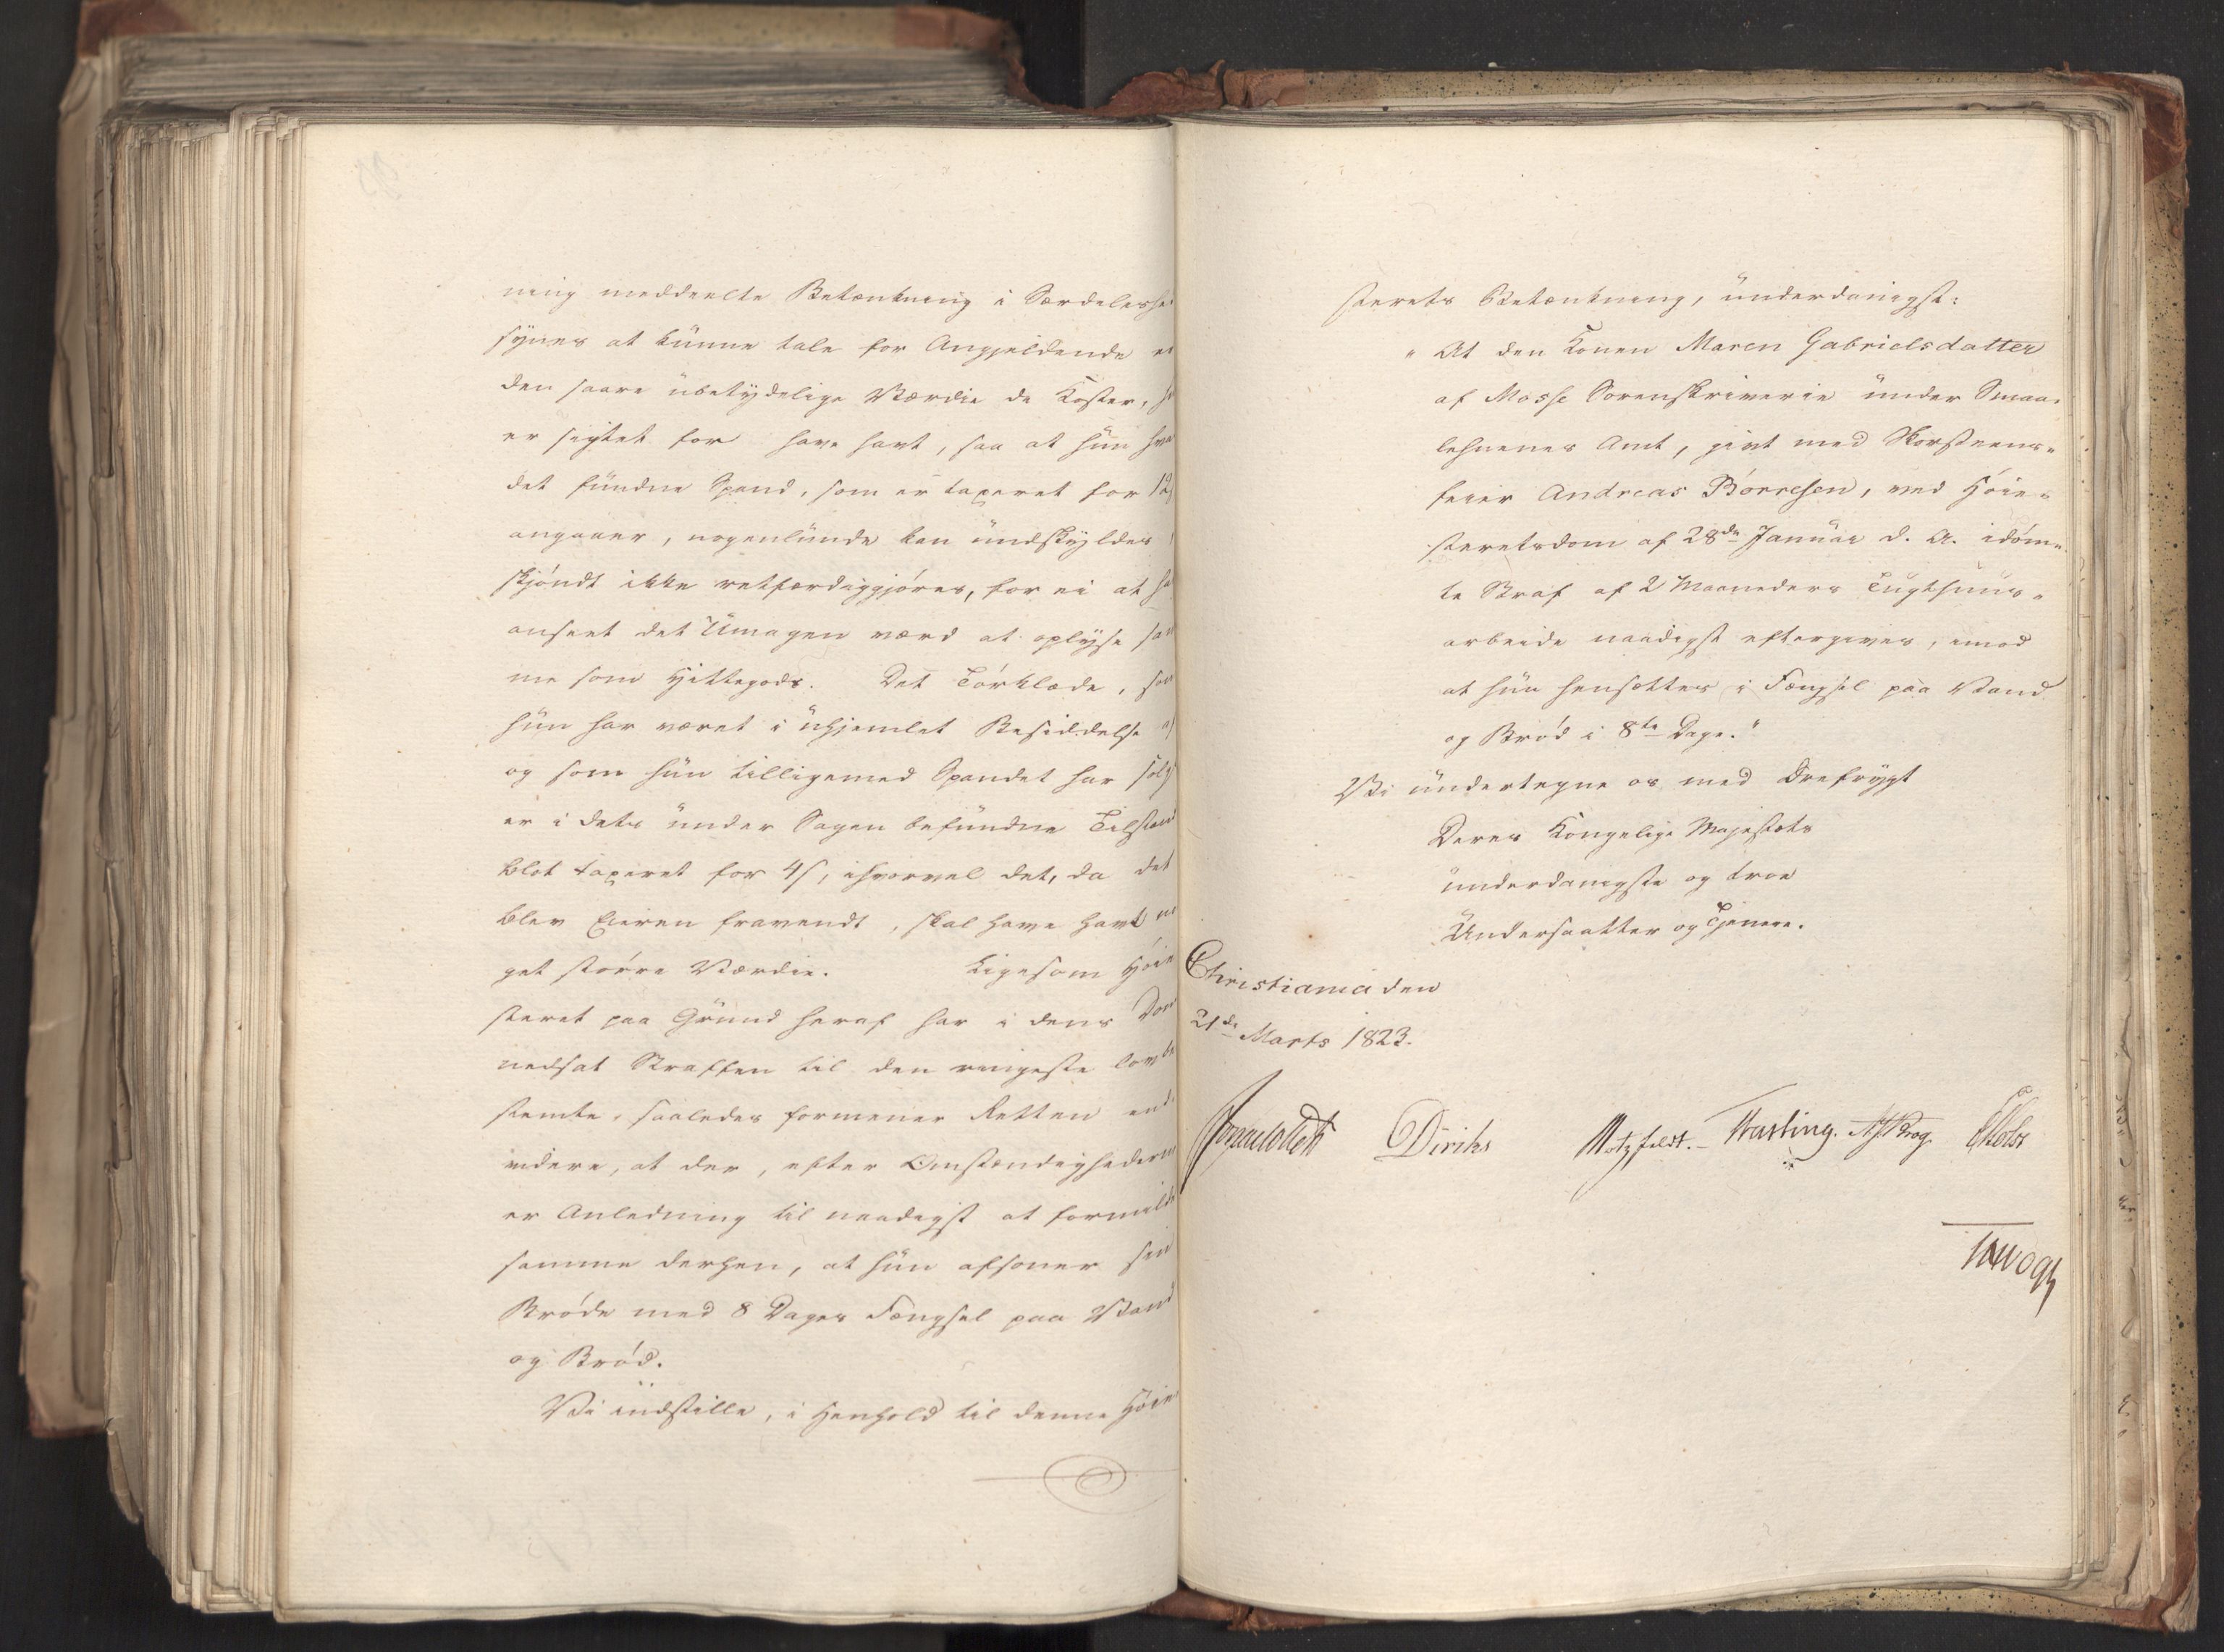 ning meddeelte Betænkning i Særdeleshe
synes at kunne tale for Angjeldende er
den saare ubetydelige Værdie de Koster,
er sigtet for have havt, saa at hun hva
det fundne Spand, som er taxeret for 12
angaaer, nogenlunde kan undskyldes
skjøndt ikke retfærdiggjøres, for ei at ha
anseet det Umagen værd at oplyse sam
me som Hittegods. Det Tørklæde, som
hun har været i uhjemlet Besiddelse af
og som hun tilligemed Spandet har solg
er i dets under Sagen befundne Tilstand
blot taxeret for 4 s, ihvorvel det, da det
blev Eieren fravendt, skal have havt no
get større Værdie. Ligesom Høie
steret paa Grund heraf har i dens Dom
nedsat Straffen til den ringeste lovbe
stemte, saaledes formener Retten end
videre, at der, efter Omstændighederne
er Anledning til naadigst at formilde
samme derhen, at hun afsoner sin
Brøde med 8 Dages Fængsel paa Vand
og Brød.
Vi indstille, i Henhold til denne Høie
sterets Betænkning, underdanigst:
"At den Konen Maren Gabrielsdatter
af Mosse Sorenskriverie under Smaa-
lehnenes Amt, givt med Skorsteens-
feier Andreas Børresen, ved Høie-
steretsdom af 28de Januar d. A. idøm-
te Straf af 2 Maaneders Tugthuus-
arbeide naadigst eftergives, imod
at hun hensættes i Fængsel paa Vand
og Brød i 8te Dage."
Vi undertegne os med Ærefrygt
Deres Kongelige Majestæts
underdanigste og troe
Undersaatter og Tjenere.
Christiania den
21de Marts 1823.
Sommerhielm Diriks Motzfeldt. Fasting. Krog. Holst